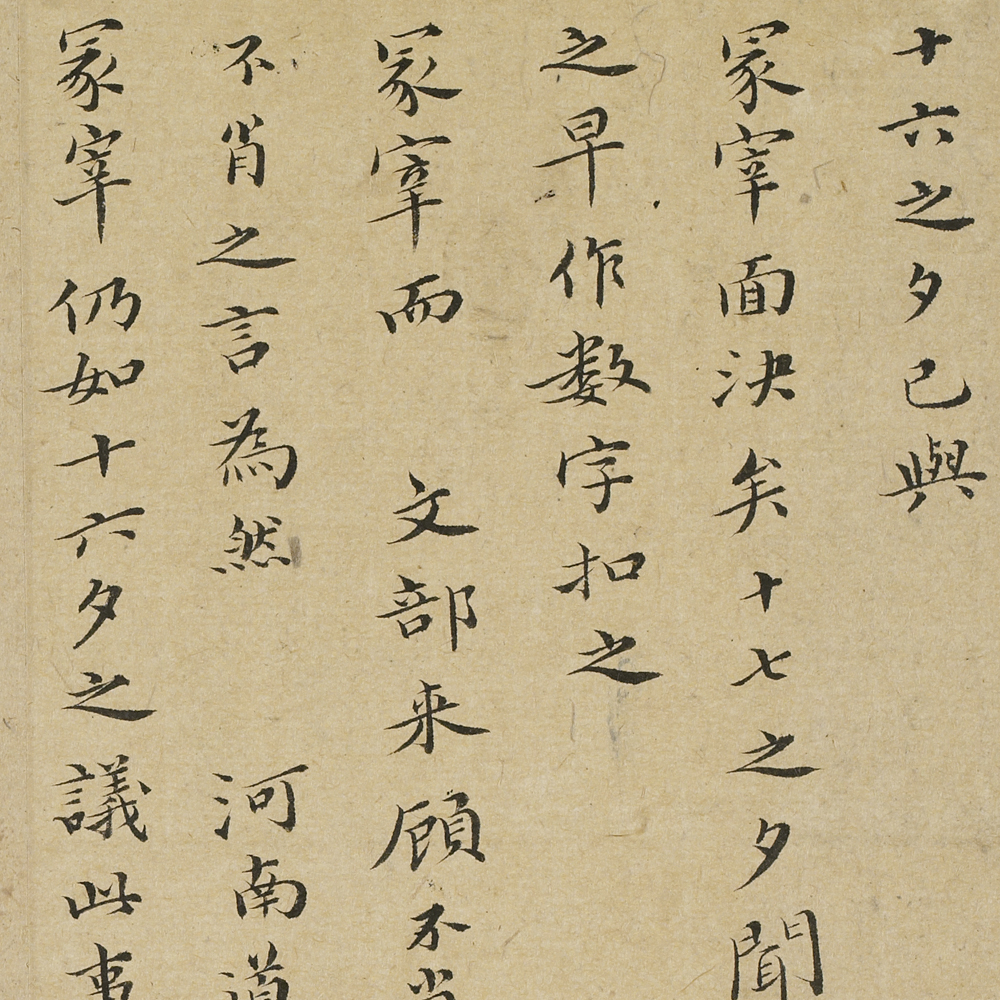 十六之夕已與
冢宰面決矣十七之夕聞
之早作数字扣之
冢宰而 文部来顧不当
不肖之言為然 河南道
冢宰仍如十六夕之議此事